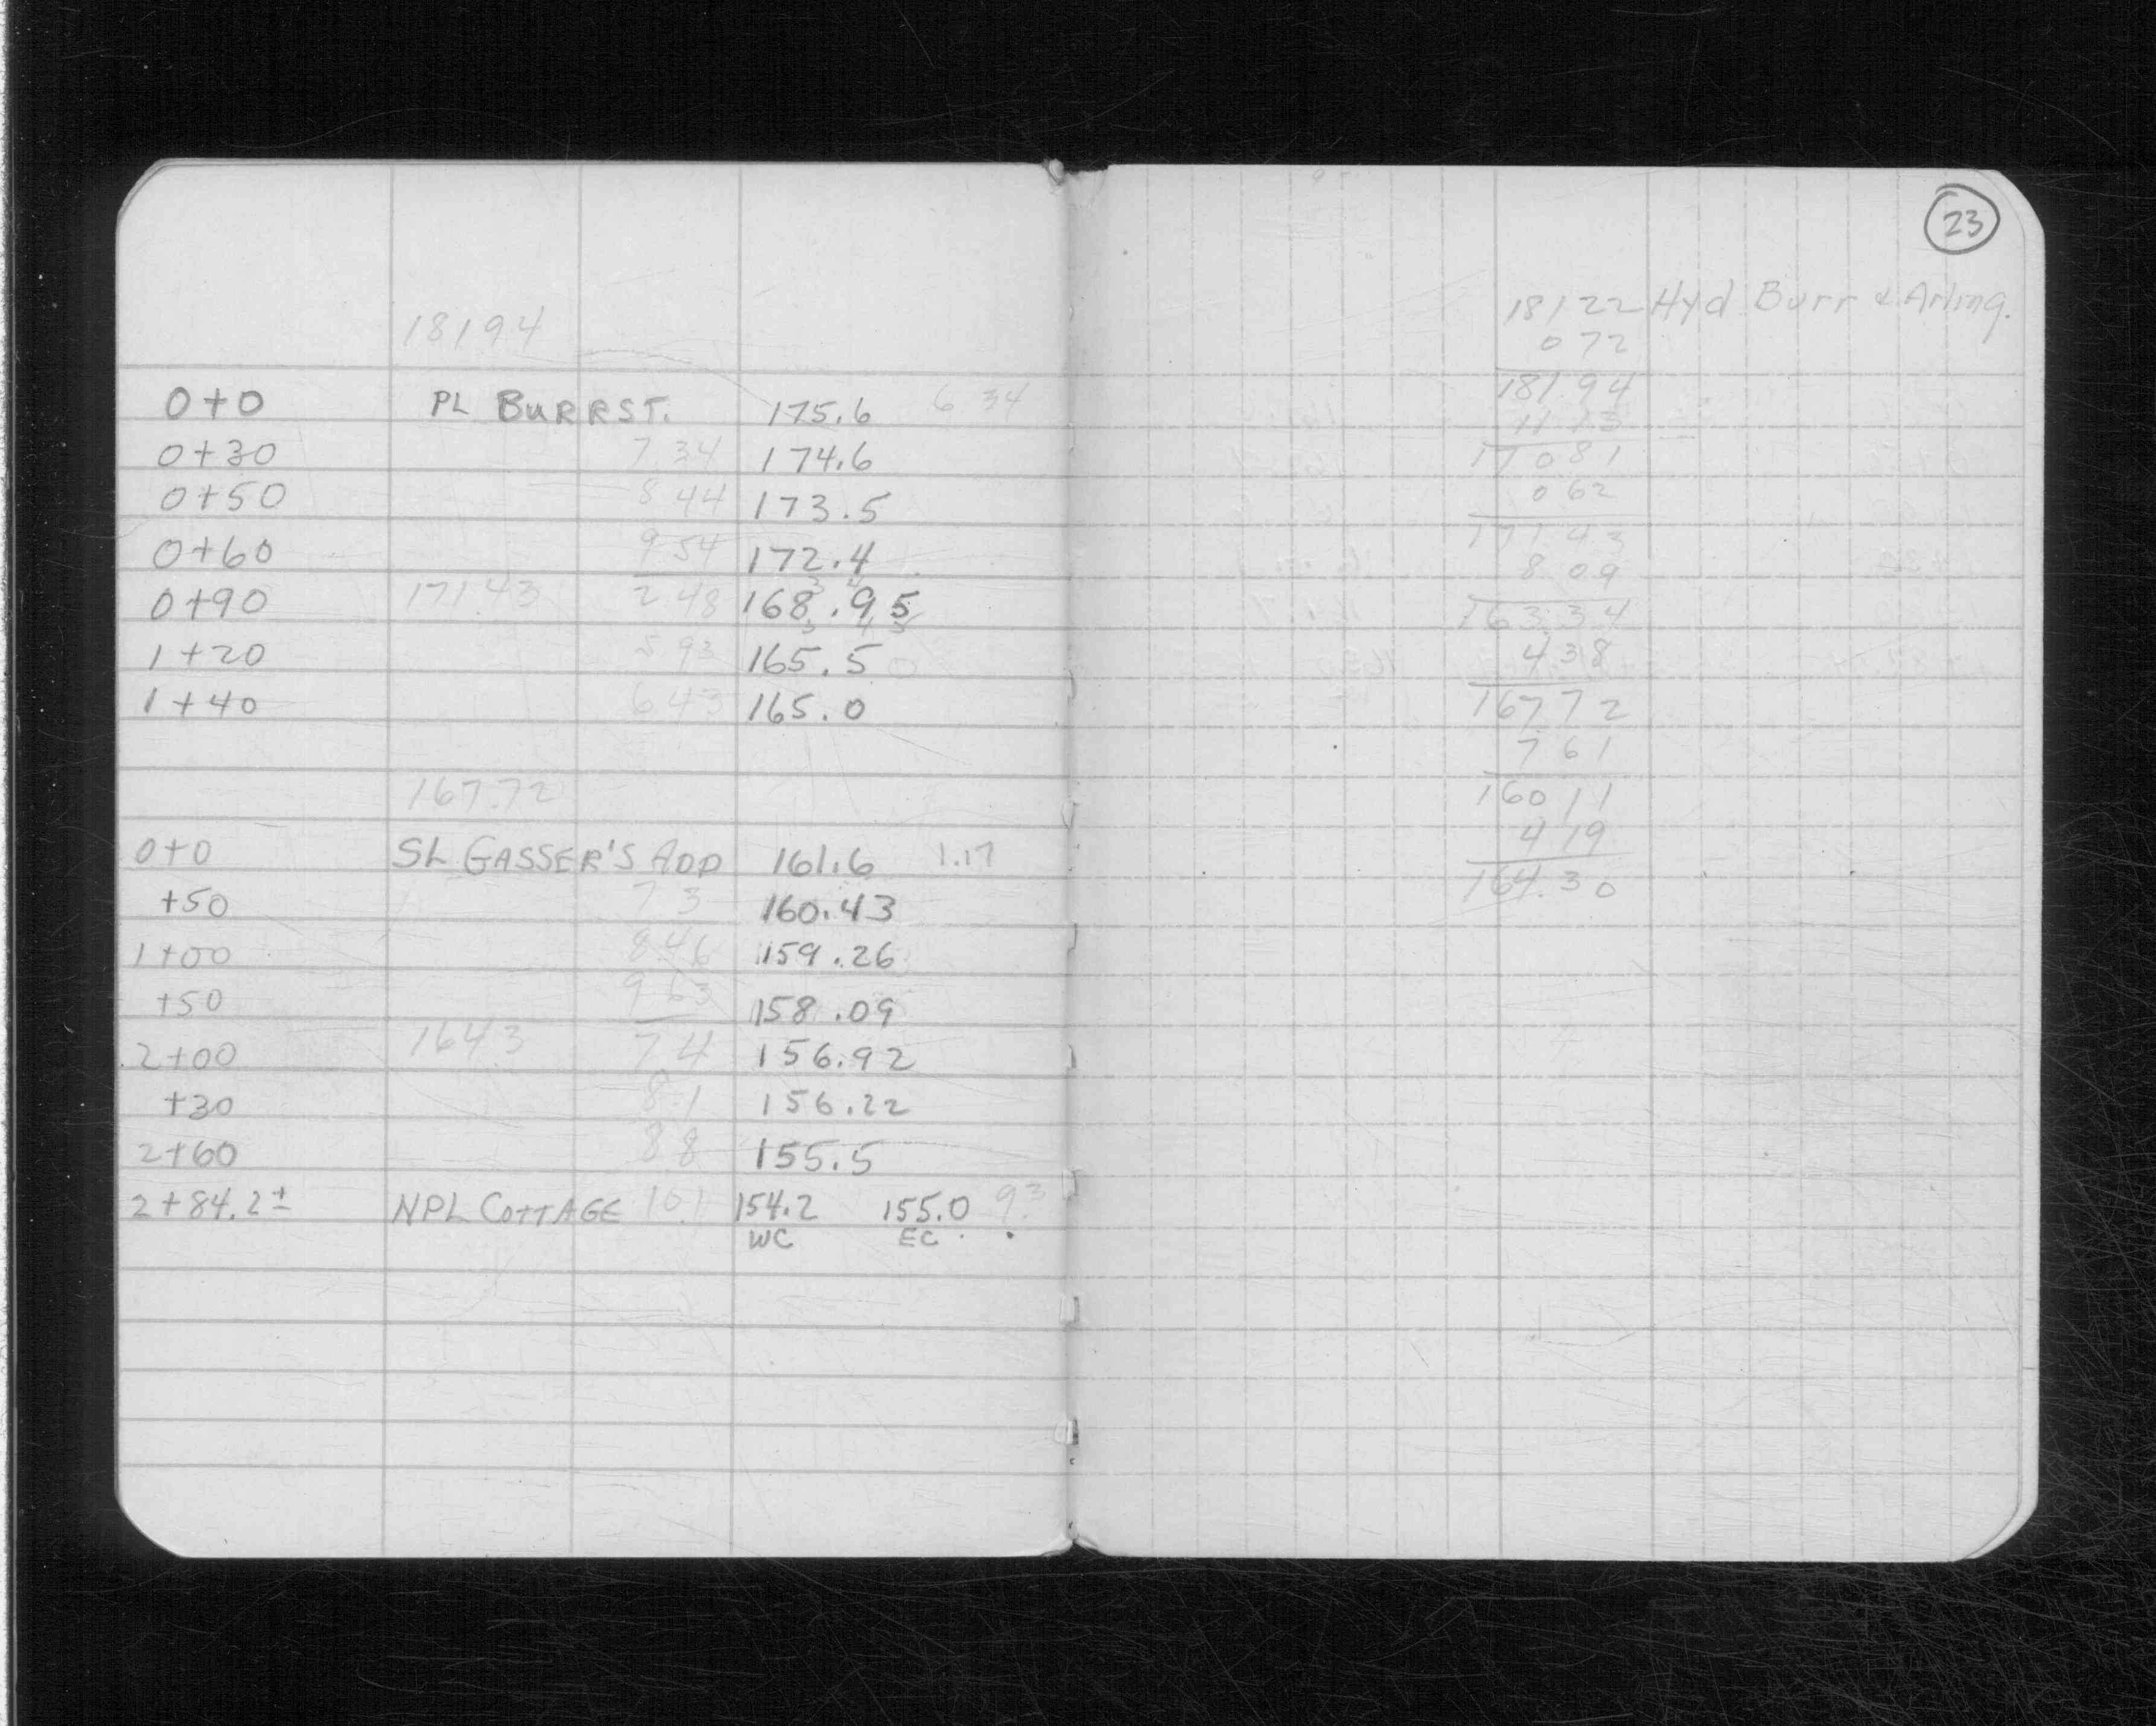 18194
0+0 PL BURR ST. 175.6 6 34
0+30 7 34 174.6
0+50 8 44 173.5
0+60 9 54 172.4
0+90 171.43 2 48 168.95
1+20 5 93 165.5 0
1+40 6 43 165.0
167.72
0+0 SL GASSER'S ADD 161.6 1.17
+50 7 3 160.43
1+00 8 46 159.26
+50 9 63 158.09
2+00 164.3 7 4 156.92
+30 8.1 156.22
2+60 8 8 155.5
2+84.2± NPL COTTAGE 10.1 154.2 155.0 9.3
WC EC
23
18122 Hyd Burr & Arling.
0 72
181.94
11 13
170 81
0 62
171 43
8 09
163 34
4 38
167 72
7 61
160 11
4 19
164.30